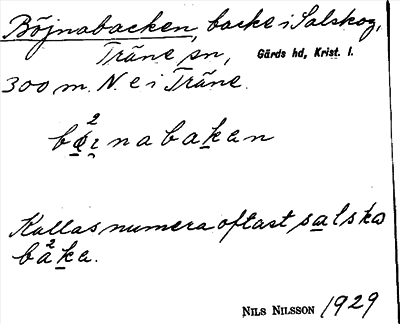 Böjnabacken, backe i Salskog,
Träne sn, Gärds hd, Krist. l.
300 m. N. e i Träne.
bø²i̯nabakan
Kallas numera oftast salsko
ba²ka.
NILS NILSSON 1929